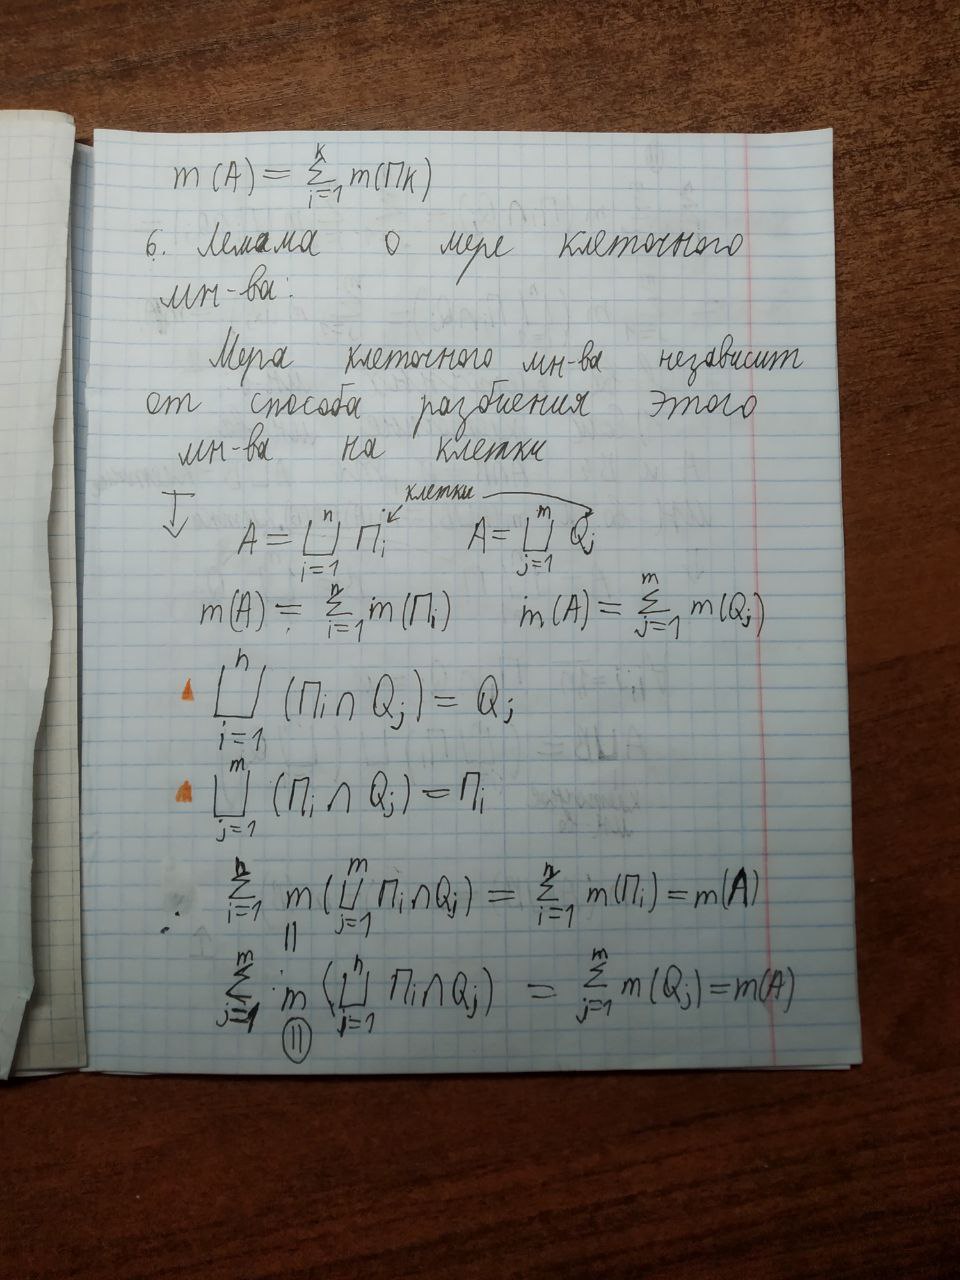 m(A) = ∑_{i=1}^{k} m(Пк)
6. Лемама о мере клеточного
мн-ва:
Мера клеточного мн-ва независит
от способа разбиения этого
мн-ва на клетки
клетки
A = ⨆_{i=1}^{n} П_i A = ⨆_{j=1}^{m} Q_j
m(A) = ∑_{i=1}^{n} m(П_i) m(A) = ∑_{j=1}^{m} m(Q_j)
⨆_{i=1}^{n} (П_i ∩ Q_j) = Q_j
⨆_{j=1}^{m} (П_i ∩ Q_j) = П_i
∑_{i=1}^{n} m(⨆_{j=1}^{m} П_i ∩ Q_j) = ∑_{i=1}^{n} m(П_i) = m(A)
||
∑_{j=1}^{m} m(⨆_{j=1}^{n} П_i ∩ Q_j) = ∑_{j=1}^{m} m(Q_j) = m(A)
||